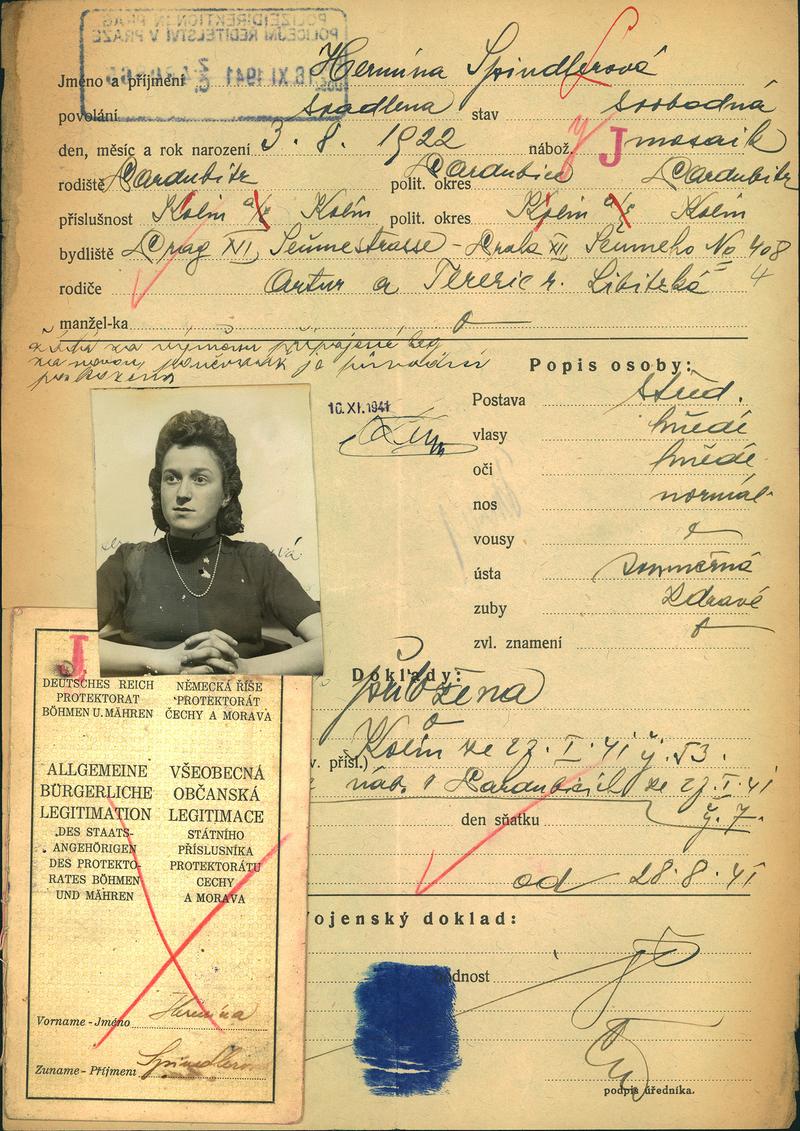 POLIZEIDIREKTION IN PRAG
POLICEJNÍ ŘEDITELSTVÍ V PRAZE
18. XI. 1941
Jméno a příjmení Hermína Spindlerová
povolání švadlena stav svobodná
den, měsíc a rok narození 3. 8. 1922 nábož. J mosaik
rodiště Pardubitz polit. okres Pardubice Pardubitz
příslušnost Kolin a/E Kolín polit. okres Kolin a/E Kolín
bydliště Prag XII, Seumestrasse - Praha XII, Seumeho No 408
rodiče Artur a Terezie r. Libitzká 4
manžel-ka
žádá za výměnu připojené leg.
za novou, poněvadž je původní
poškozena
Popis osoby:
Postava střed.
10. XI. 1941
vlasy hnědé
oči hnědé
nos normál.
vousy
ústa souměrná
zuby zdravé
zvl. znamení
Doklady:
přiložena
v. přísl.) Kolín ze 27. I. 41 č. 53.
náb. v Pardubicích ze 27. I. 41
den sňatku č. 7.
od 28. 8. 41
Vojenský doklad:
hodnost
podpis úředníka.
J
DEUTSCHES REICH
PROTEKTORAT
BÖHMEN U. MÄHREN
NĚMECKÁ ŘÍŠE
PROTEKTORÁT
ČECHY A MORAVA
ALLGEMEINE
BÜRGERLICHE
LEGITIMATION
DES STAATS-
ANGEHÖRIGEN
DES PROTEKTO-
RATES BÖHMEN
UND MÄHREN
VŠEOBECNÁ
OBČANSKÁ
LEGITIMACE
STÁTNÍHO
PŘÍSLUŠNÍKA
PROTEKTORÁTU
ČECHY
A MORAVA
Vorname - Jméno Hermína
Zuname - Příjmení Spindlerová